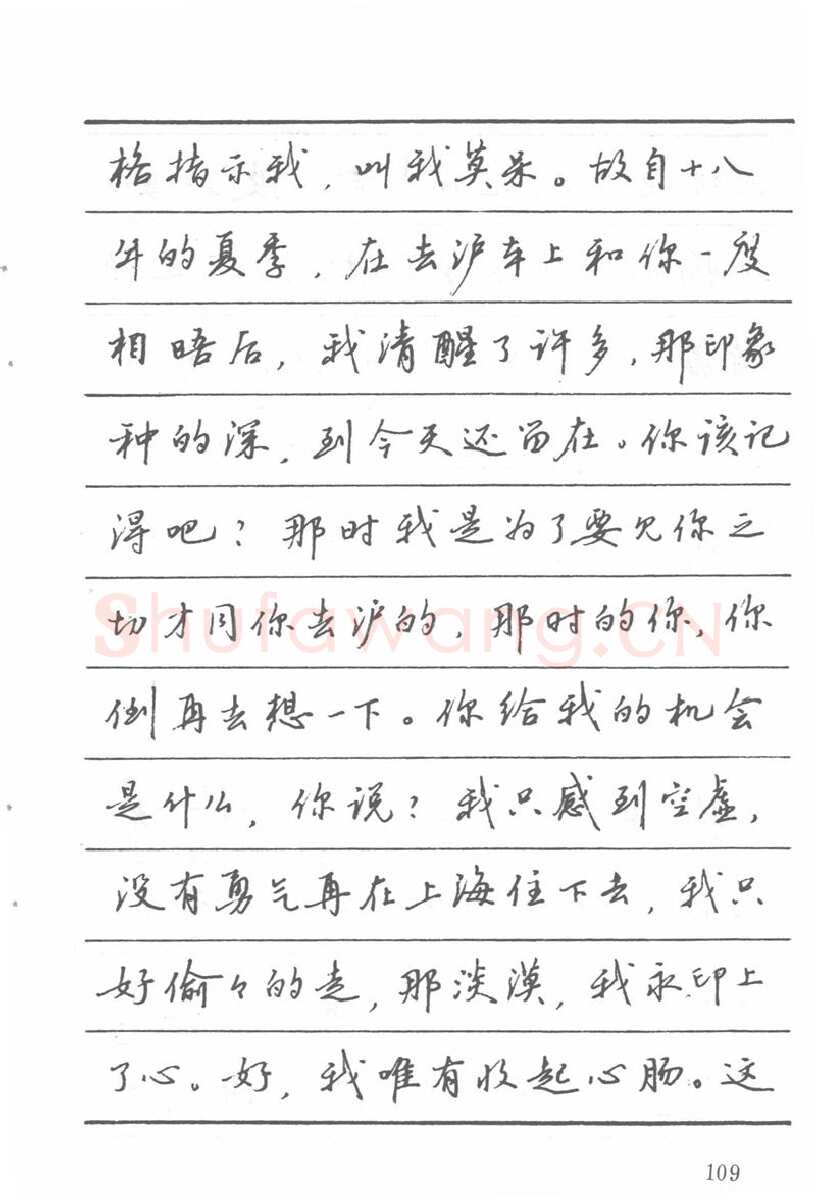 格指示我，叫我莫呆。故自十八
年的夏季，在去沪车上和你一度
相晤后，我清醒了许多，那印象
种的深，到今天还留在。你该记
得吧？那时我是为了要见你之
切才同你去沪的，那时的你，你
倒再去想一下。你给我的机会
是什么，你说？我只感到空虚，
没有勇气再在上海住下去，我只
好偷々的走，那淡漠，我永印上
了心。好，我唯有收起心肠。这
109
Shufawang.CN